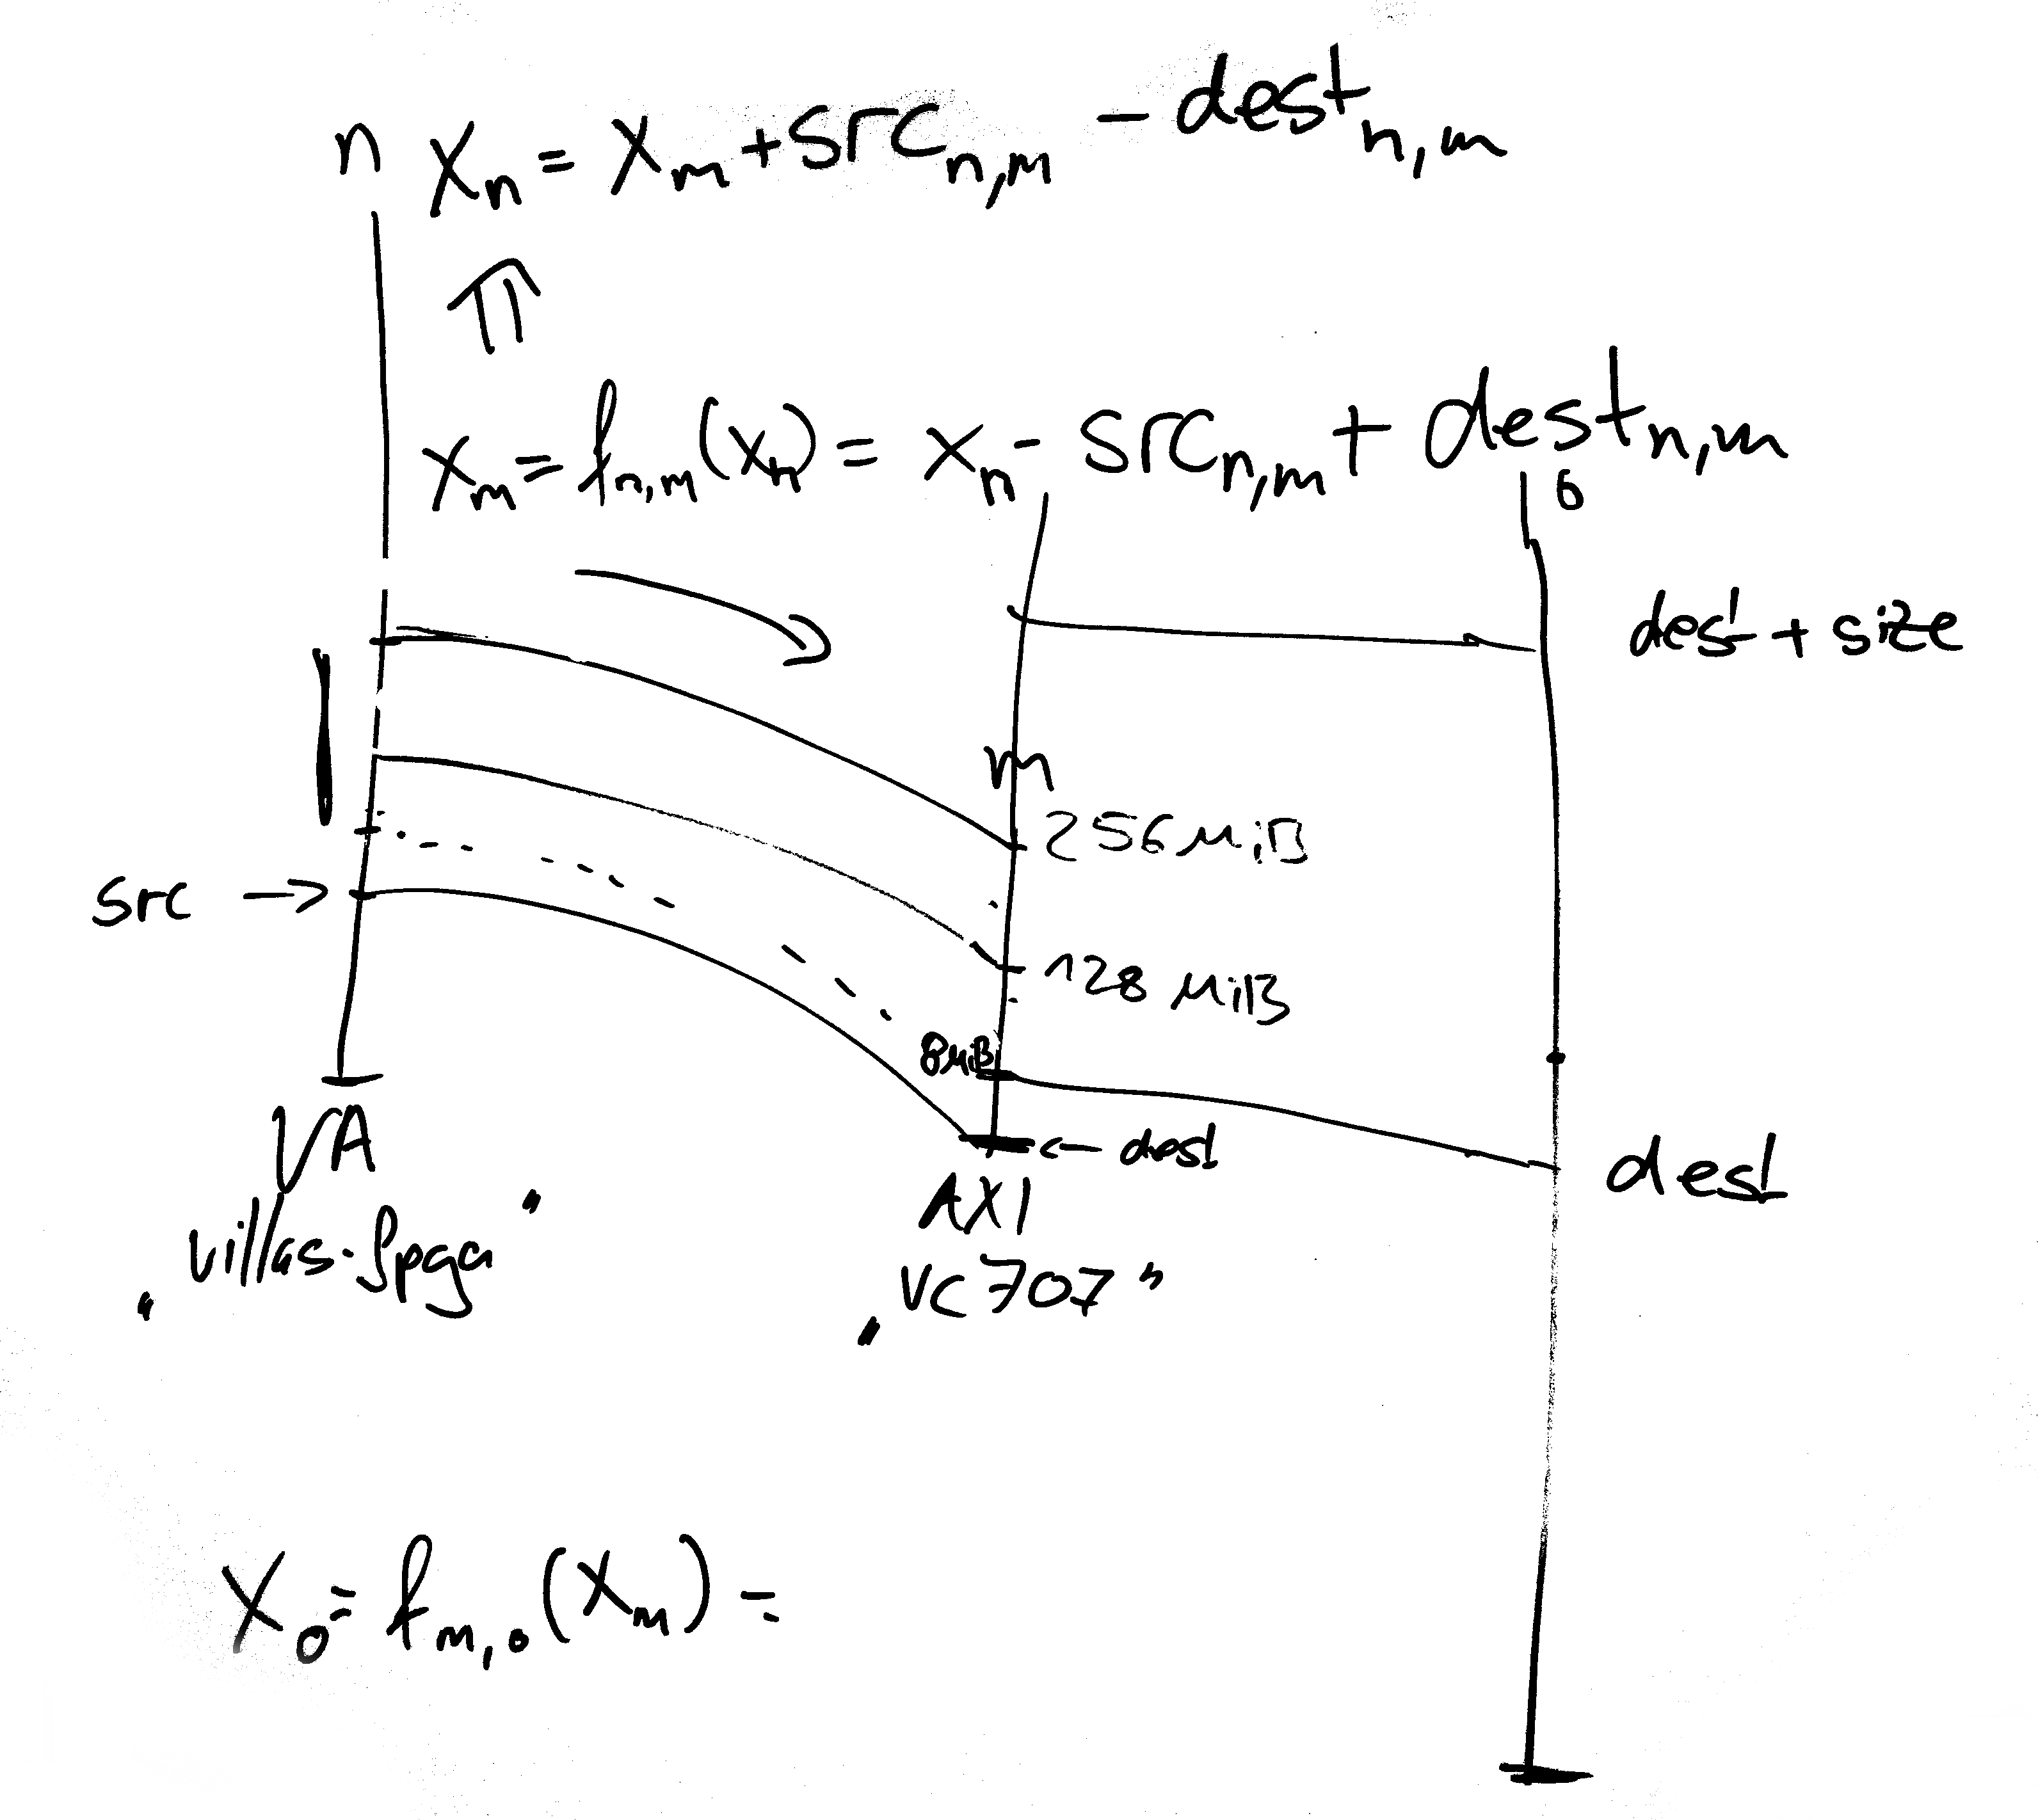 n
Xn = Xm + srcn,m - destn,m
⇑
Xm = fn,m(Xn) = Xn - srcn,m + destn,m
o
dest + size
m
256 MiB
src →
128 MiB
8MiB
← dest
dest
VA
„villas-fpga"
AXI
„VC707"
Xo = fm,o(Xm) =